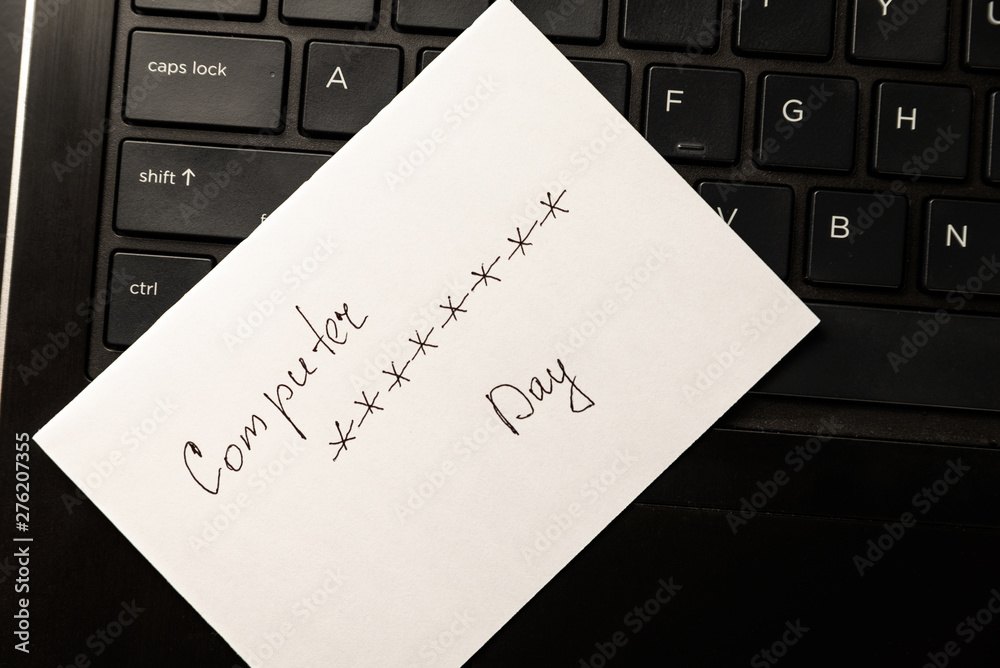 T Y U
caps lock A F G H
shift ↑ V B N
ctrl
Computer
*-*-*-*-*-*-*-*
Day
Adobe Stock | #276207355
Adobe Stock